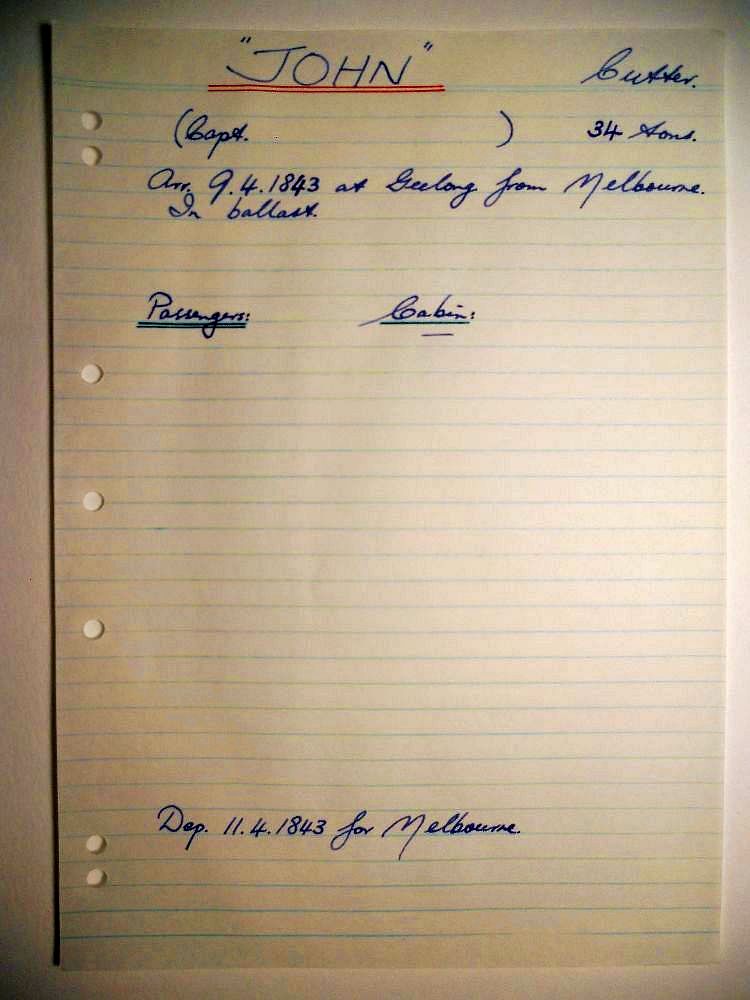 "JOHN" Cutter.
(Capt. ) 34 tons.
Arr. 9.4.1843 at Geelong from Melbourne.
In ballast.
Passengers: Cabin:
Dep. 11.4.1843 for Melbourne.